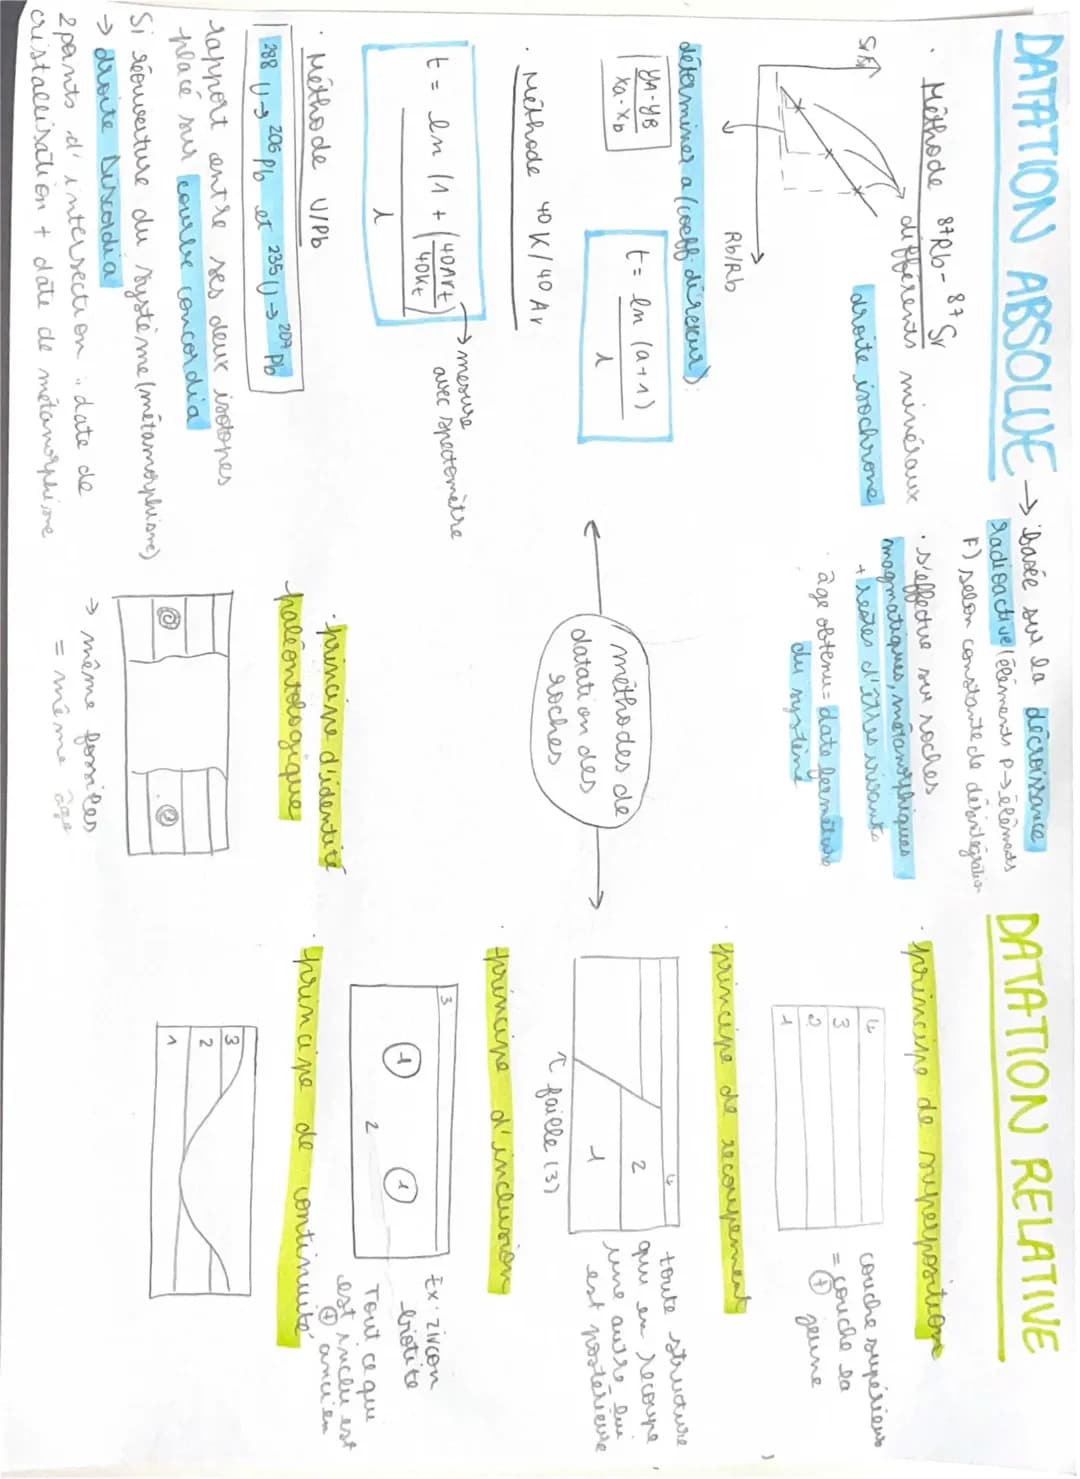 DATATION ABSOLUE → basée sur la décroissance
radioactive (éléments P → éléments
F) selon constante de désintégration
. s'effectue sur roches
magmatiques, métamorphiques
+ restes d'êtres vivants
. âge obtenu = date fermeture
du système
. Méthode 87Rb - 87Sr
Sr/Sr
différents minéraux
droite isochrone
Rb/Rb
déterminer a (coeff directeur) :
yA - yB
xa - xb
t = ln (a+1)
λ
. Méthode 40K / 40Ar
t = ln (1 + (40Art
40Kt)
λ
→ mesure
avec spectomètre
. Méthode U/Pb
288 U → 206 Pb et 235 U → 207 Pb
rapport entre ses deux isotopes
placé sur courbe concordia
Si réouverture du système (métamorphisme)
→ droite Discordia
2 points d'intersection : date de
cristallisation + date de métamorphisme
méthodes de
datation des
roches
. principe d'identité
paléontologique
→ même fossiles
= même âge
DATATION RELATIVE
. principe de superposition
4
3
2
1
couche supérieure
= couche la
+ jeune
. principe de recoupement
4
2
1
faille (3)
toute structure
qui en recoupe
une autre lui
est postérieure
. principe d'inclusion
3
1
1
2
Ex : zircon
biotite
Tout ce qui
est inclu est
+ ancien
. principe de continuité
3
2
1